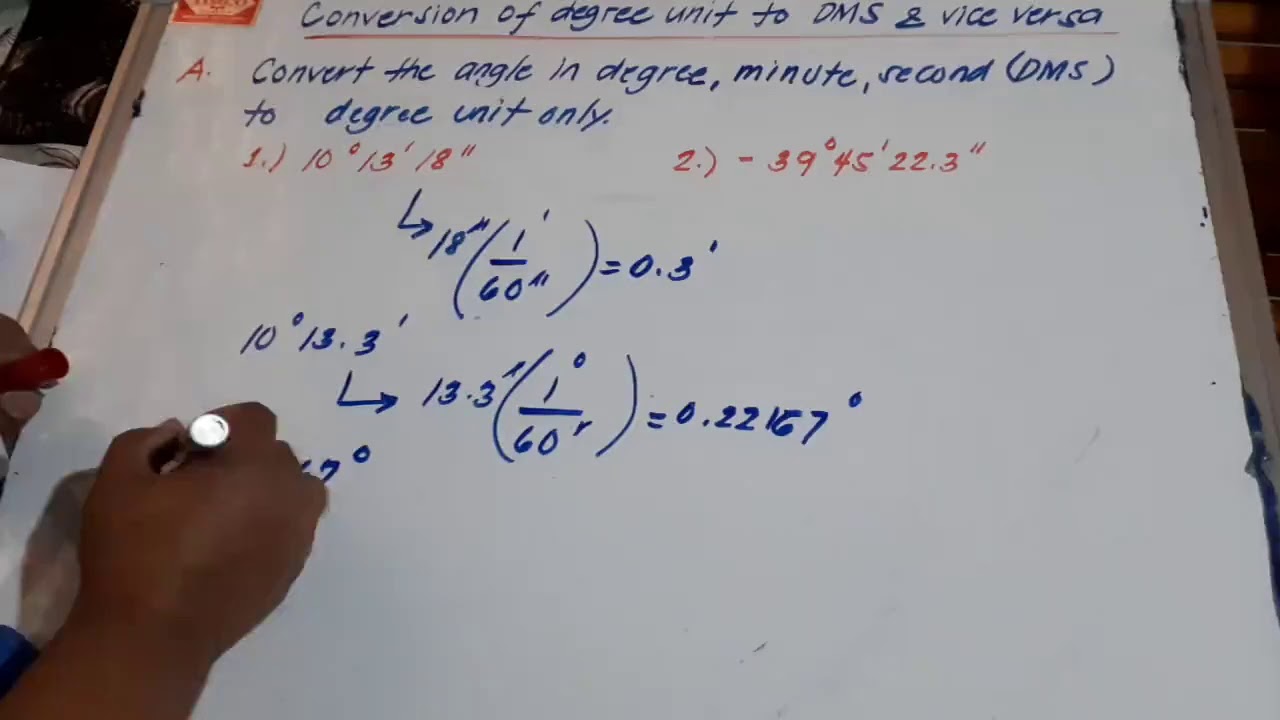 Conversion of degree unit to DMS & vice versa
A. Convert the angle in degree, minute, second (DMS)
to degree unit only.
1.) 10°13'18" 2.) -39°45'22.3"
18"(1'/60")=0.3'
10°13.3'
13.3'(1°/60')=0.22167°
7°